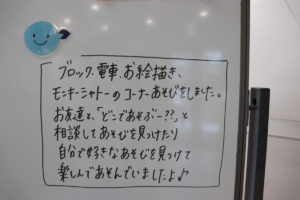 ブロック、電車、お絵描き、
モンキーシャトーのコーナーあそびをしました。
お友達と、「どこであそぶー??」と
相談してあそびを見つけたり
自分で好きなあそびを見つけて
楽しんであそんでいましたよ♪